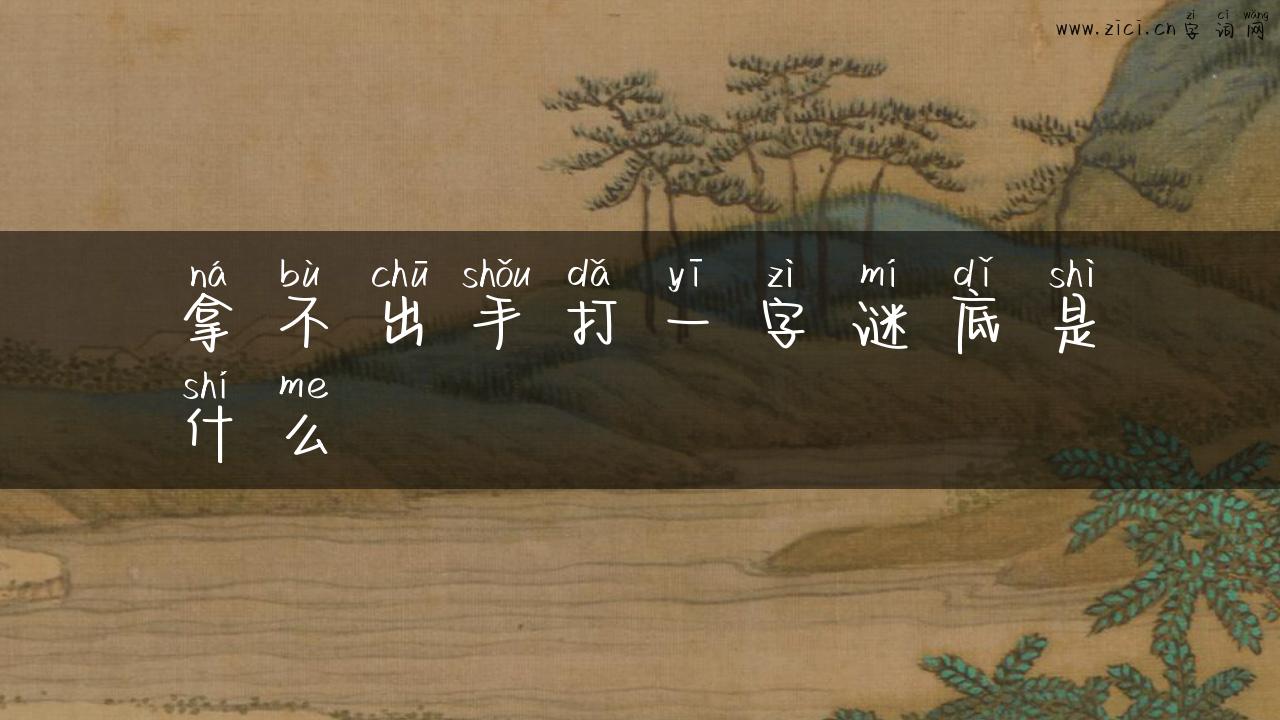 zì cí wǎng
www.zici.cn 字 词 网
ná bù chū shǒu dǎ yī zì mí dǐ shì
拿 不 出 手 打 一 字 谜 底 是
shí me
什 么